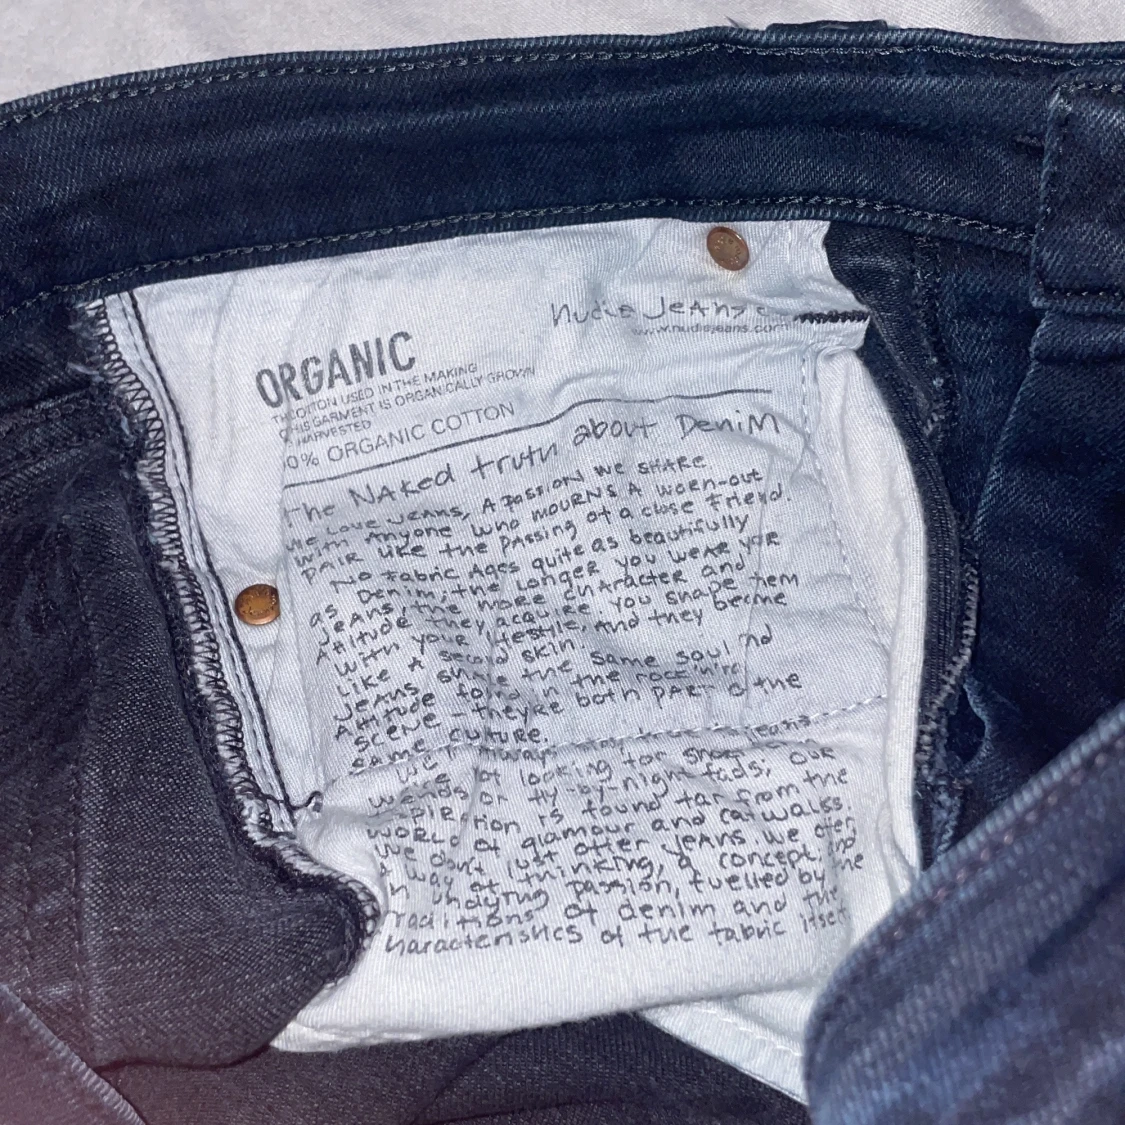 Nudie Jeans c
www.nudiejeans.com
ORGANIC
COTTON USED IN THE MAKING
THIS GARMENT IS ORGANICALLY GROWN
HARVESTED
0% ORGANIC COTTON
The NAKed truth about DeniM
We Love jeans, A passion we SHARE
with Anyone who mourns A worn-out
PAIR like the passing of a close friend.
No fabric Ages quite as beautifully
as Denim; the longer you wear your
Jeans, the more character and
Attitude they acquire. You shape them
with your lifestyle, and they become
like a second skin.
Jeans share the same soul and
Attitude found in the rock'n'roll
scene - they're both part of the
same culture.
We
not looking for
or fly-by-night fads; our
is found far from the
world of glamour and catwalks.
We don't just offer jeans. We offer
A way of thinking, a concept, and
undying passion, fuelled by the
raditions of denim and the
haracteristics of the fabric itself